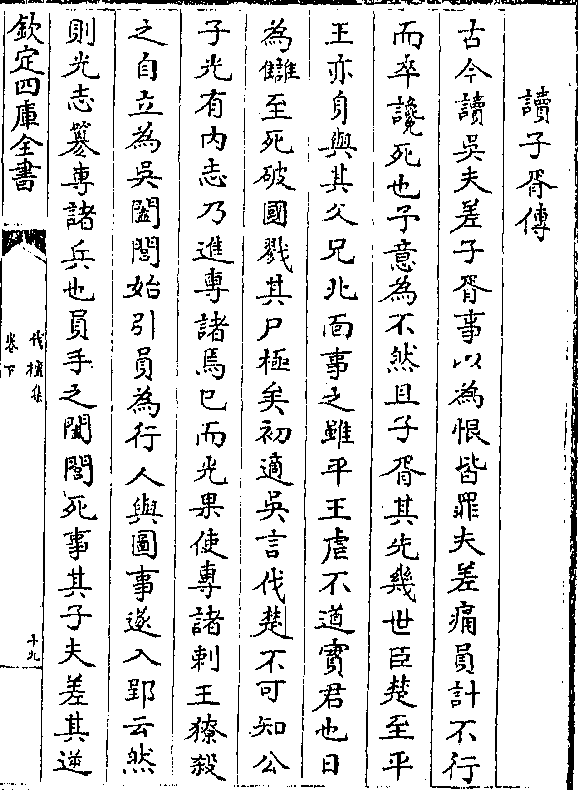 讀子胥傳
古今讀吳夫差子胥事以為恨皆罪夫差痛員計不行
而卒讒死也予意為不然且子胥其先幾世臣楚至平
王亦身與其父兄北面事之雖平王虐不道實君也日
為讎至死破國戮其尸極矣初適吳言伐楚不可知公
子光有內志乃進專諸焉已而光果使專諸刺王獠殺
之自立為吳闔閭始引員為行人與圖事遂入郢云然
則光志簒專諸兵也員手之闔閭死事其子夫差其逆
欽定四庫全書
伐檀集
卷下
十九